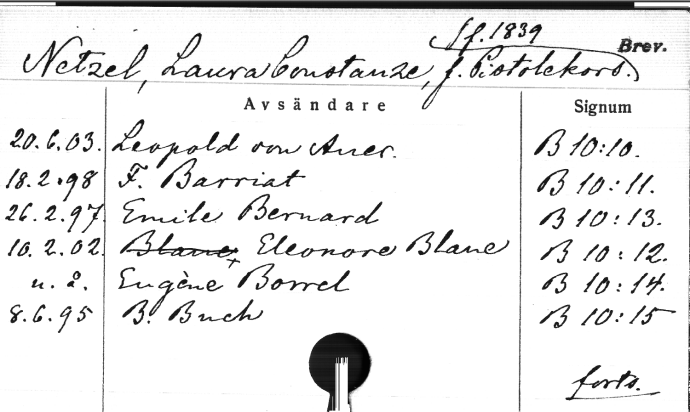 f. 1839 Brev.
Netzel, Laura Constanze, f. Pistolekors.
Avsändare Signum
20.6.03. Leopold von Auer. B 10:10.
18.2.98 F. Barriat B 10:11.
26.2.97. Emile Bernard B 10:13.
10.2.02. Blanc, Eleonore Blanc B 10:12.
u. å. Eugène Borrel B 10:14.
8.6.95 B. Buch B 10:15
forts.